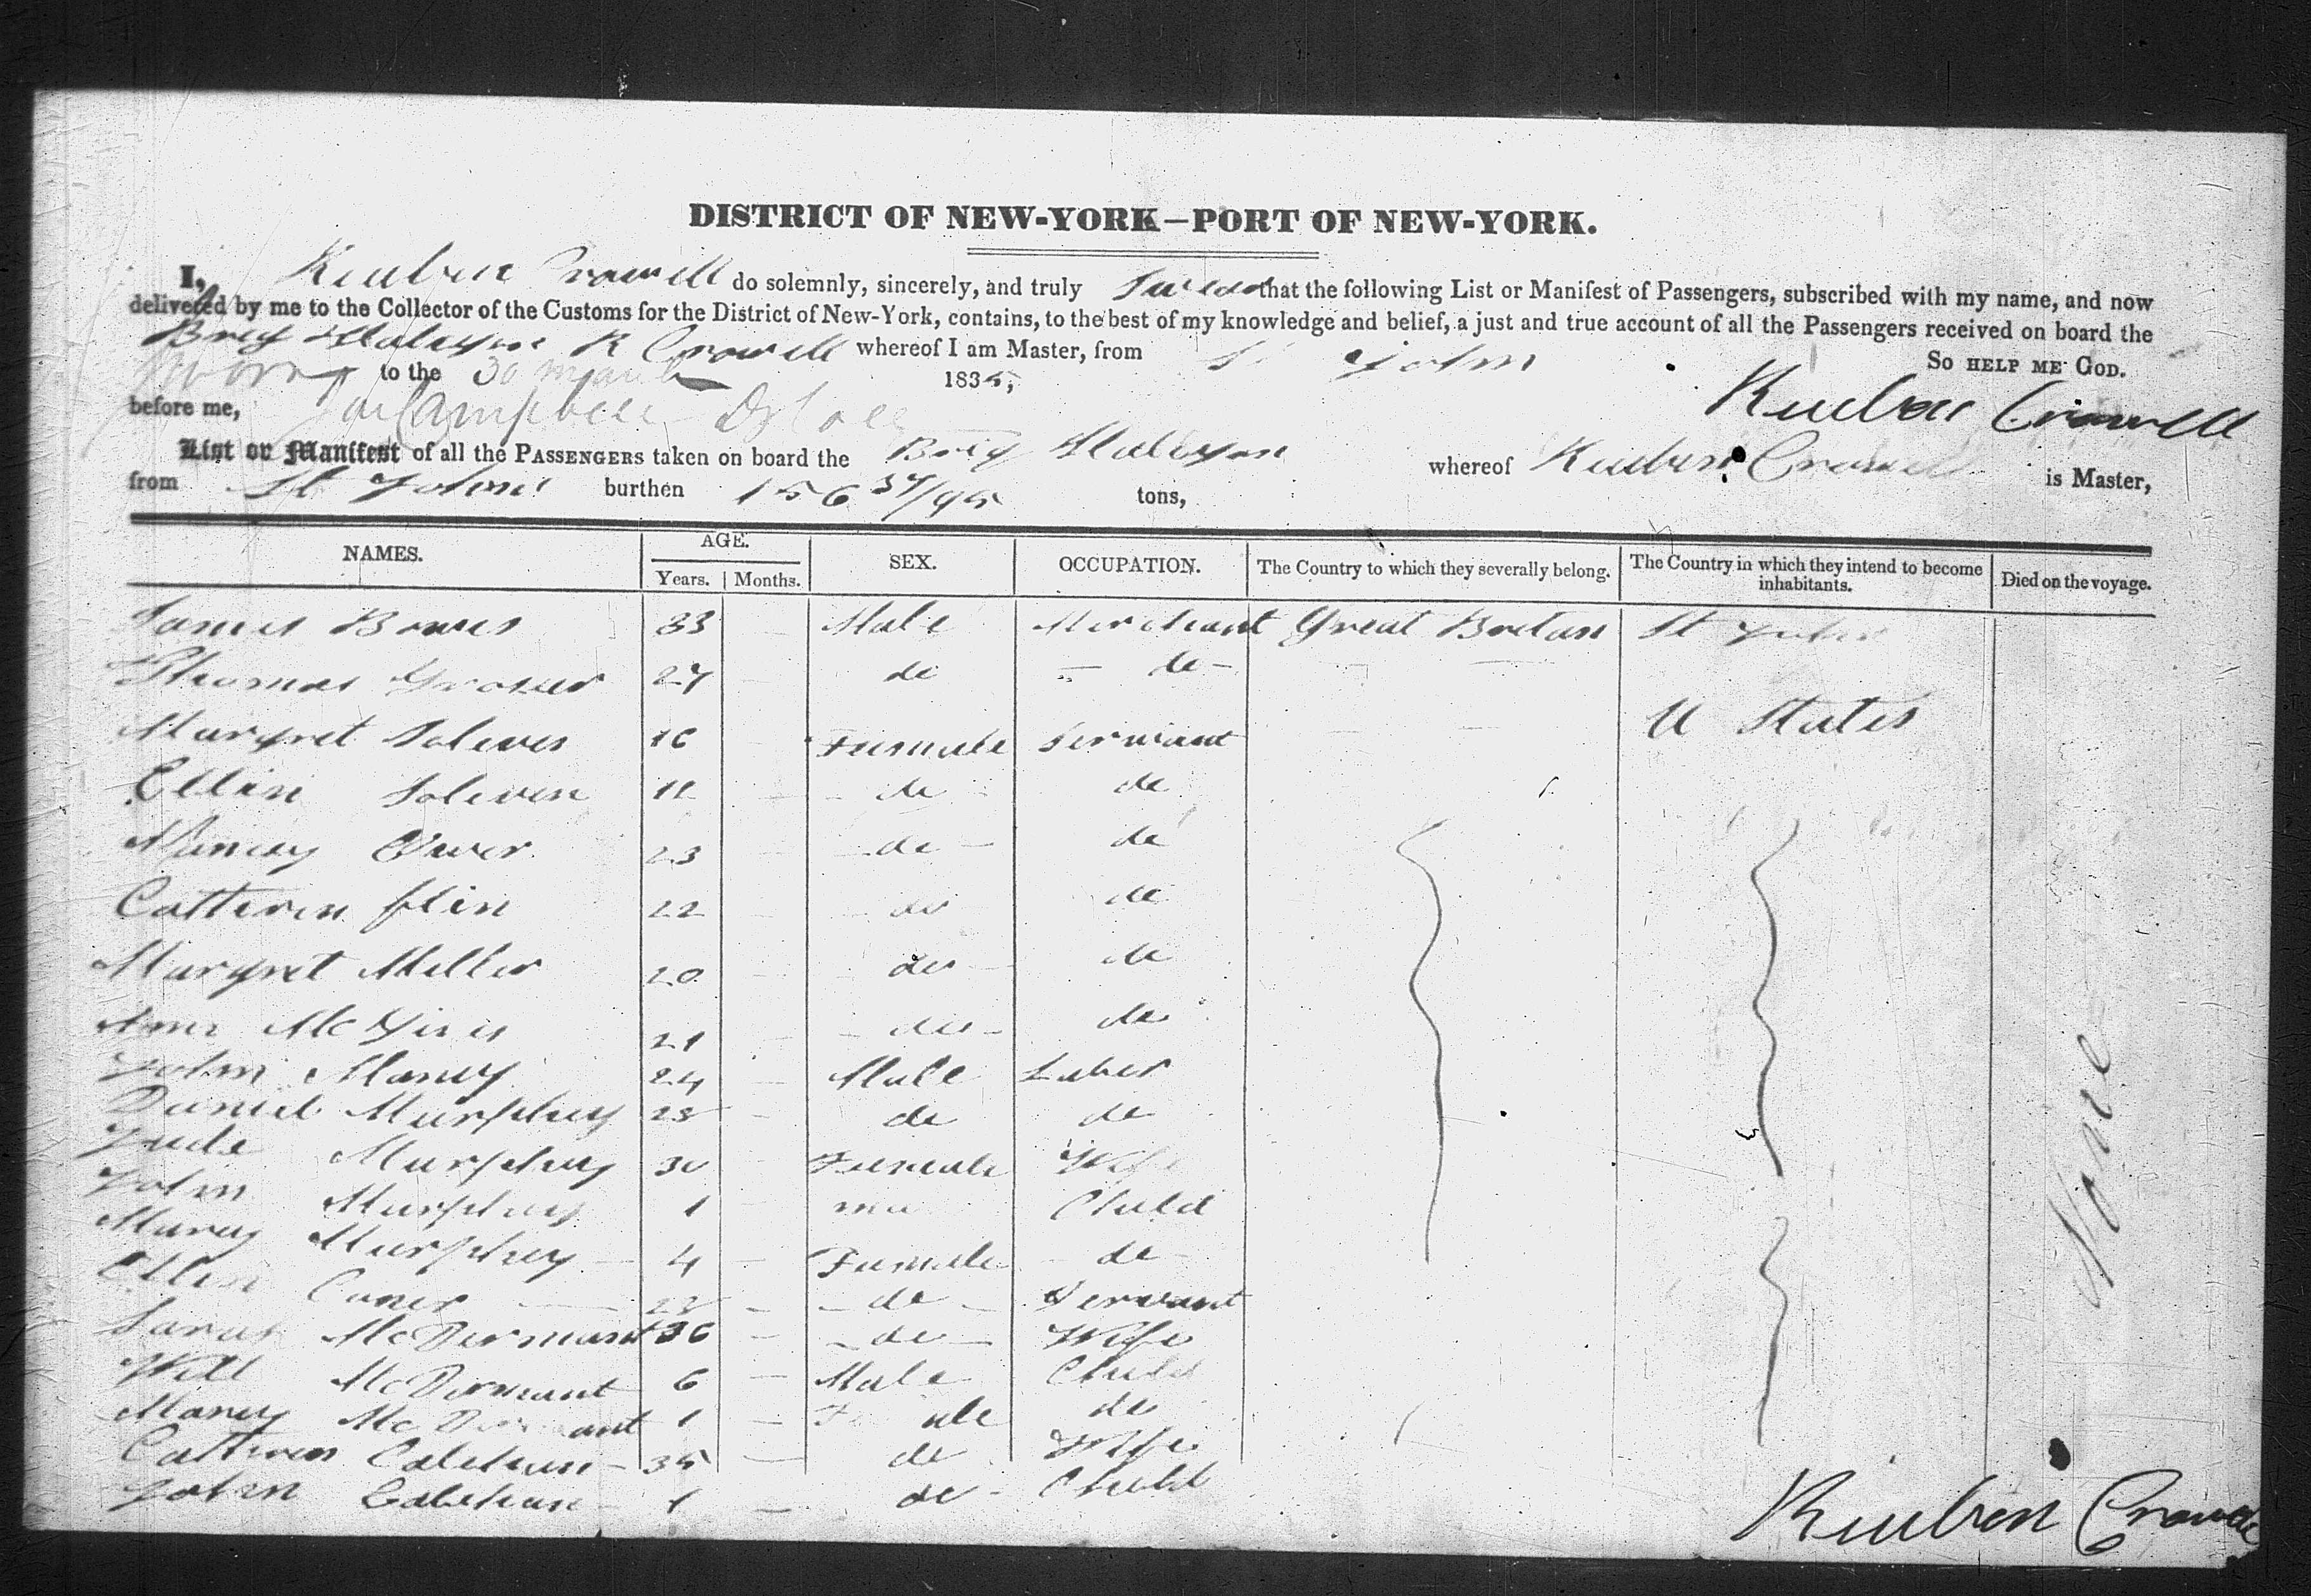 DISTRICT OF NEW-YORK—PORT OF NEW-YORK.
I, Reuben Crowell do solemnly, sincerely, and truly Swear that the following List or Manifest of Passengers, subscribed with my name, and now
delivered by me to the Collector of the Customs for the District of New-York, contains, to the best of my knowledge and belief, a just and true account of all the Passengers received on board the
Brig Halcyon R Crowell whereof I am Master, from St John
Sworn to the 30 March 1835, So HELP ME GOD.
before me, Campbell Reuben Crowell
List or Manifest of all the PASSENGERS taken on board the Brig Halcyon whereof Reuben Crowell is Master,
from St Johns burthen 156 37/95 tons,
NAMES. AGE. SEX. OCCUPATION. The Country to which they severally belong. The Country in which they intend to become inhabitants. Died on the voyage.
Years. Months.
James Bowes 33 Male Merchant Great Bretan St John
Thomas 27 de de
Margret 16 Fumale Servant U States
Ellin Soleven 11 de de
Nancy 23 de de
Catteren flin 22 de de
Margret Miller 20 de de
Ann McGinis 21 de de
John Maney 24 Male Laber
Daniel Murphey 28 de de
Jude Murphey 30 Fumale Wife
John Murphey 1 Child
Marey Murphey 4 Fumale de
Ellin Coner de Servant
Sarah McDermant 36 de Wife
Will McDermant 6 Male Child
Marey McDermant 1 de
Catteren Calehan 35 de Wife
John Calehan 1 de Child
None
Reuben Crowell